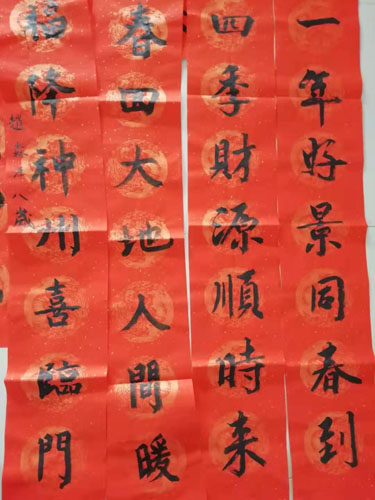 一年好景同春到
四季財源順時来
春回大地人間暖
福降神州喜臨門
八歲